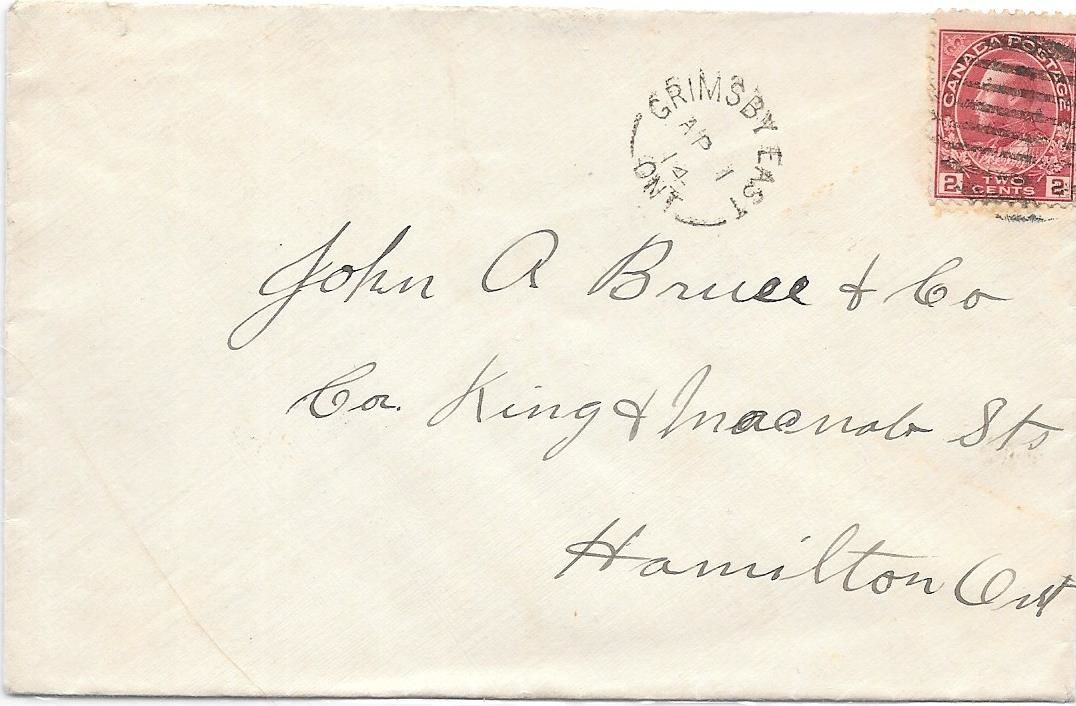 CANADA POSTAGE
2 TWO CENTS 2
GRIMSBY EAST
AP 1
14
ONT
John A Bruce & Co
Co. King & Macnab Sts
Hamilton Ont